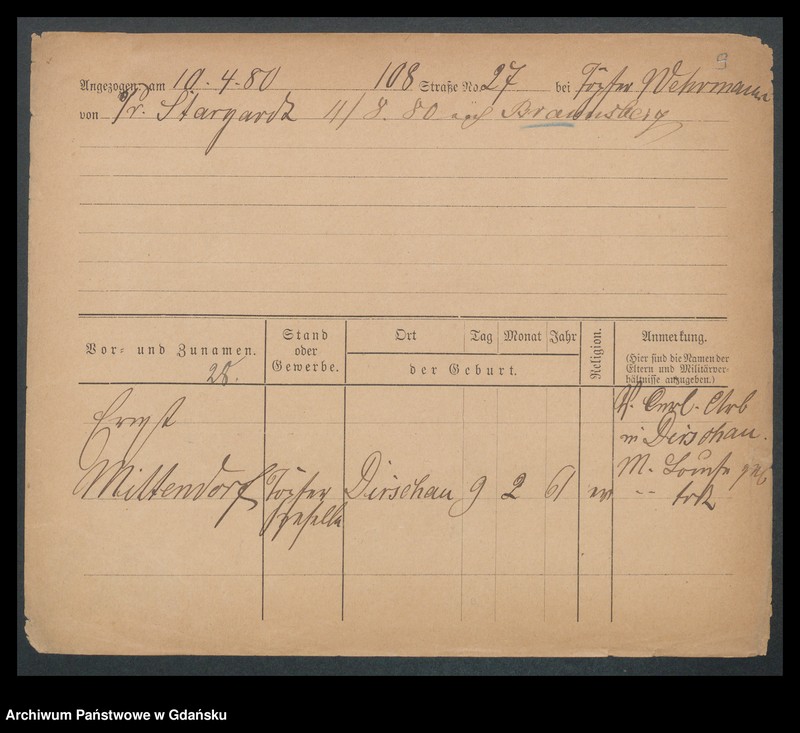 9
Angezogen: am 10.4.80 108 Straße No. 27 bei Töpfer Wehrmann
von Pr. Stargardt 11/8.80 nach Braunsberg
Vor- und Zunamen.
Stand
oder
Gewerbe.
Ort Tag Monat Jahr
der Geburt.
Religion.
Anmerkung.
(Hier sind die Namen der
Eltern und Militärver-
hältnisse anzugeben.)
28.
Ernst
Mittendorf
Töpfer
geselle
Dirschau 9 2 61 ev
V. Carl. Arb
in Dirschau.
M. Louise geb
-- todt
Archiwum Państwowe w Gdańsku